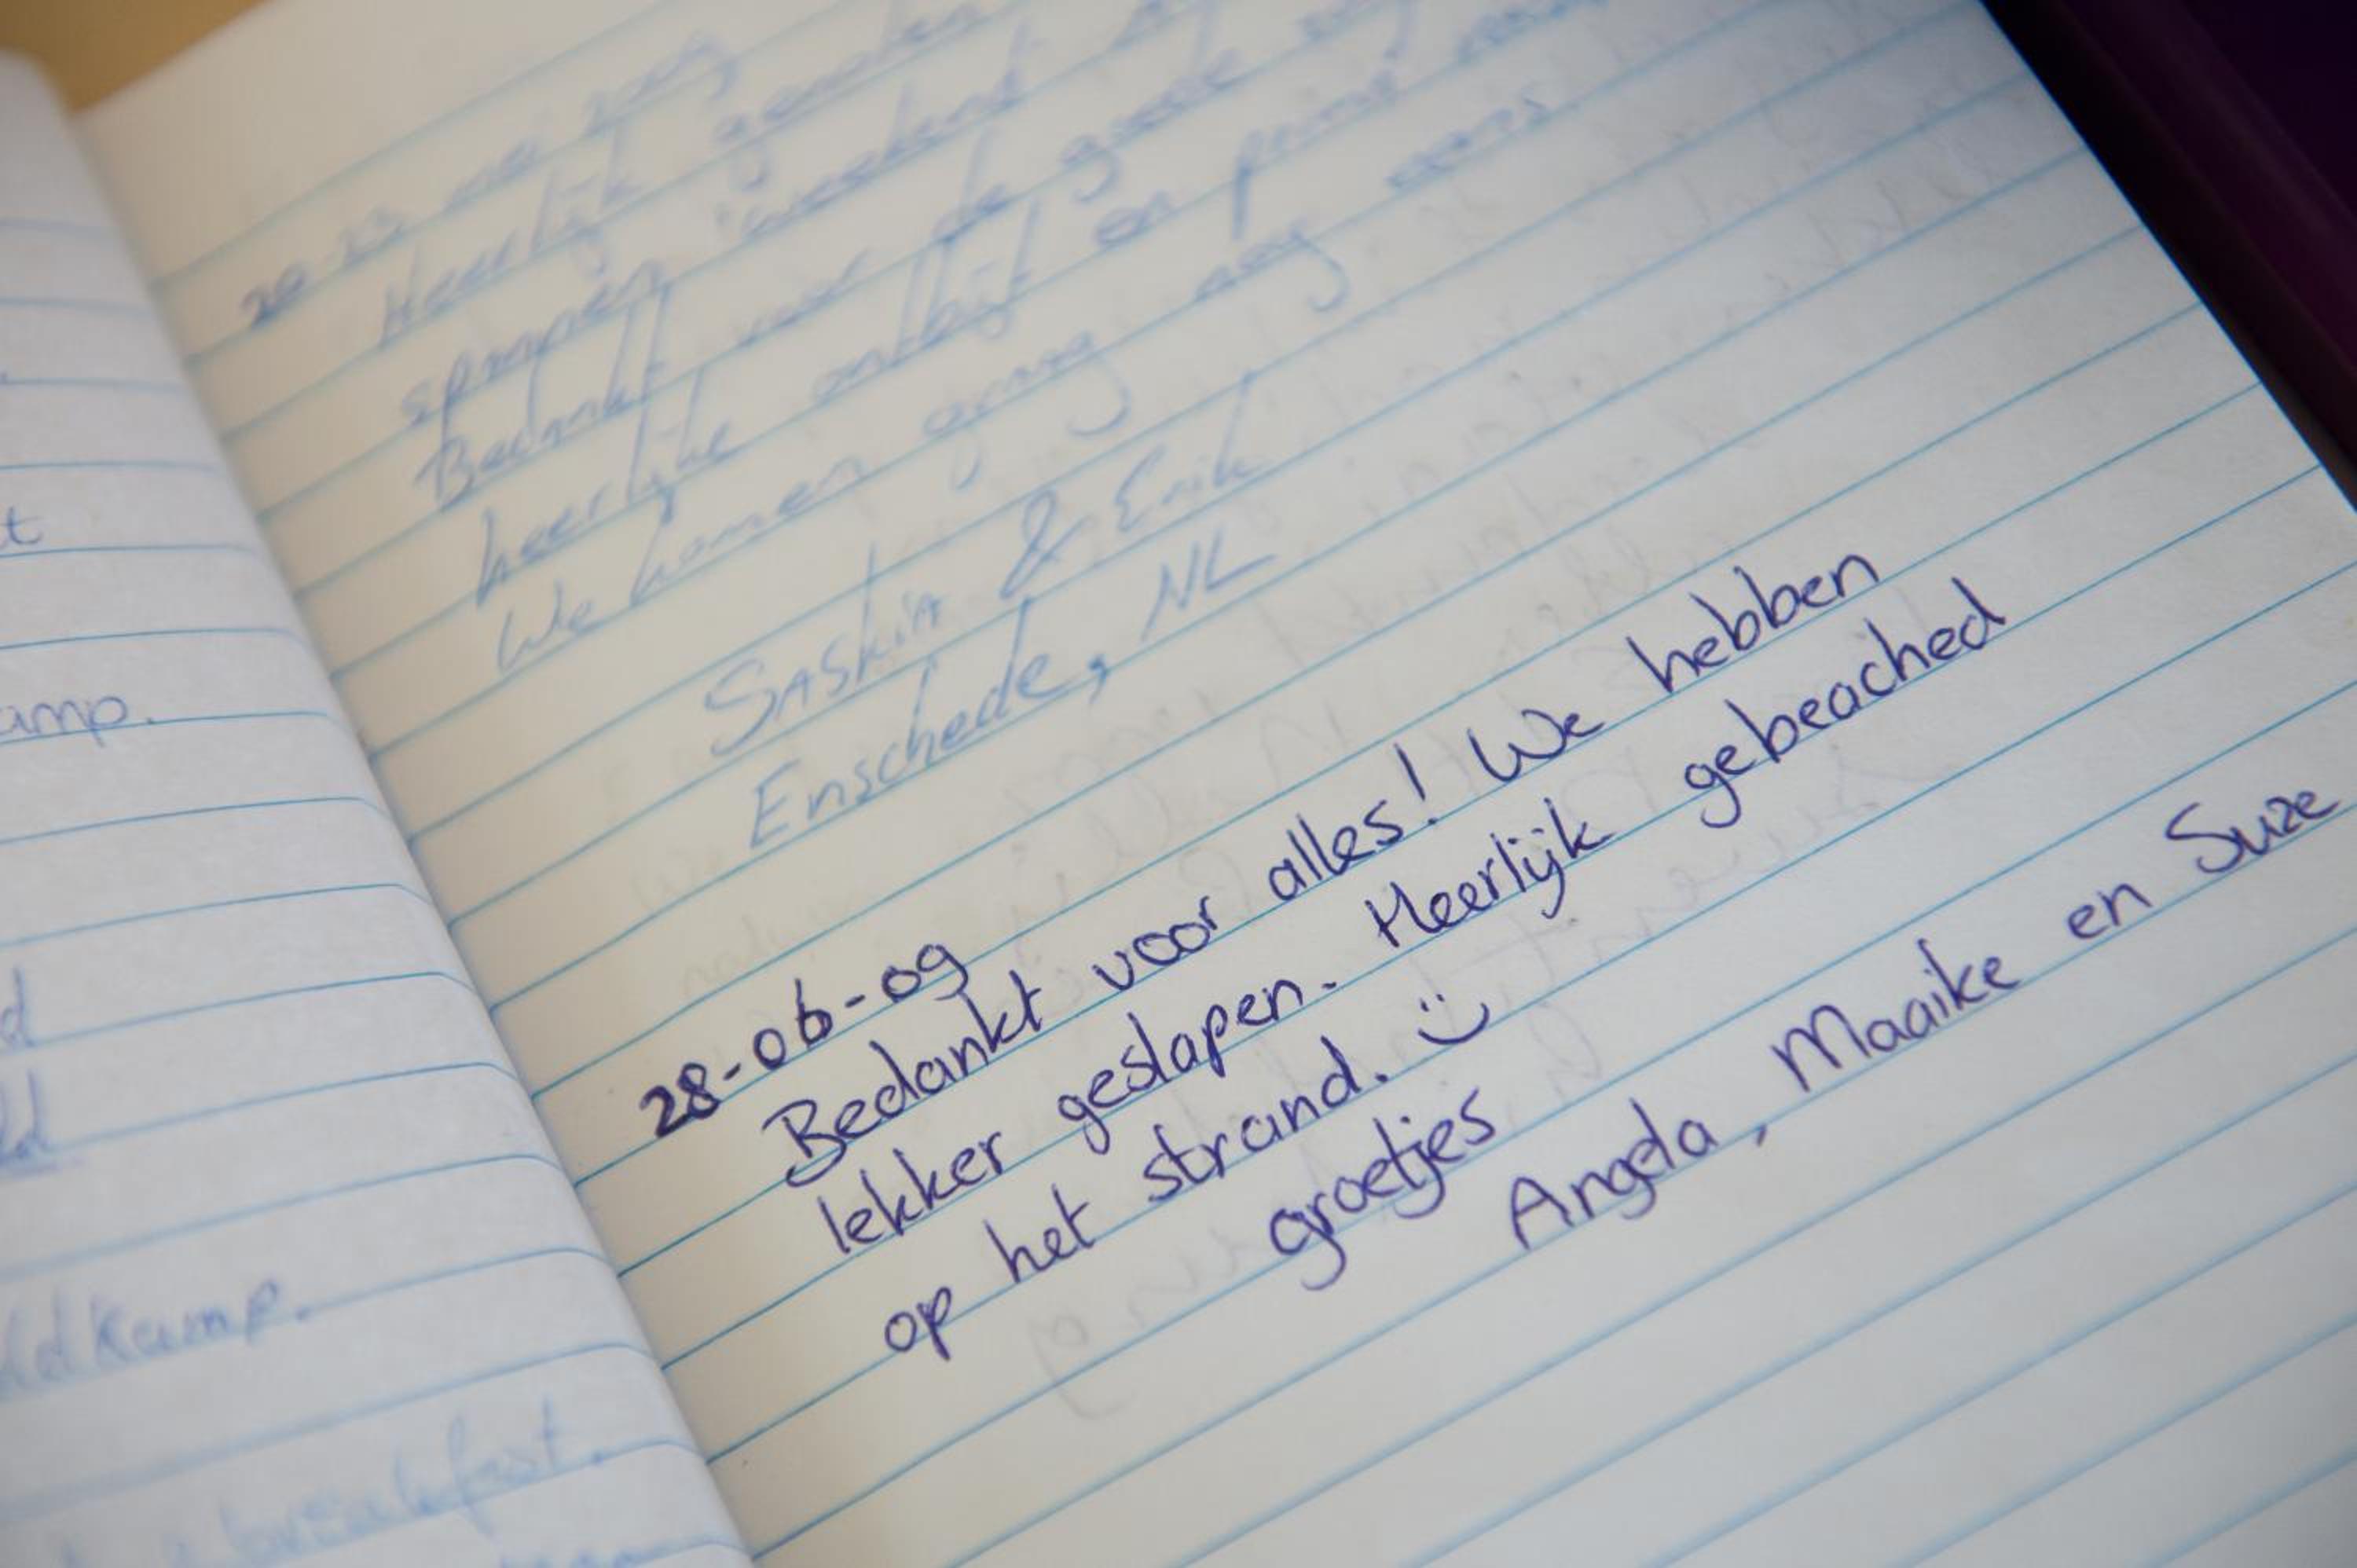 t
amp.
d
ld
ldkamp.
breakfast.
Heerlijk genoten
weekend
Bedankt voor de goede
heerlijke ontbijt en
We komen graag nog eens
Saskia & Erik
Enschede, NL
28-06-09
Bedankt voor alles! We hebben
lekker geslapen. Heerlijk gebeached
op het strand. :)
groetjes
Angela, Maaike en Suze